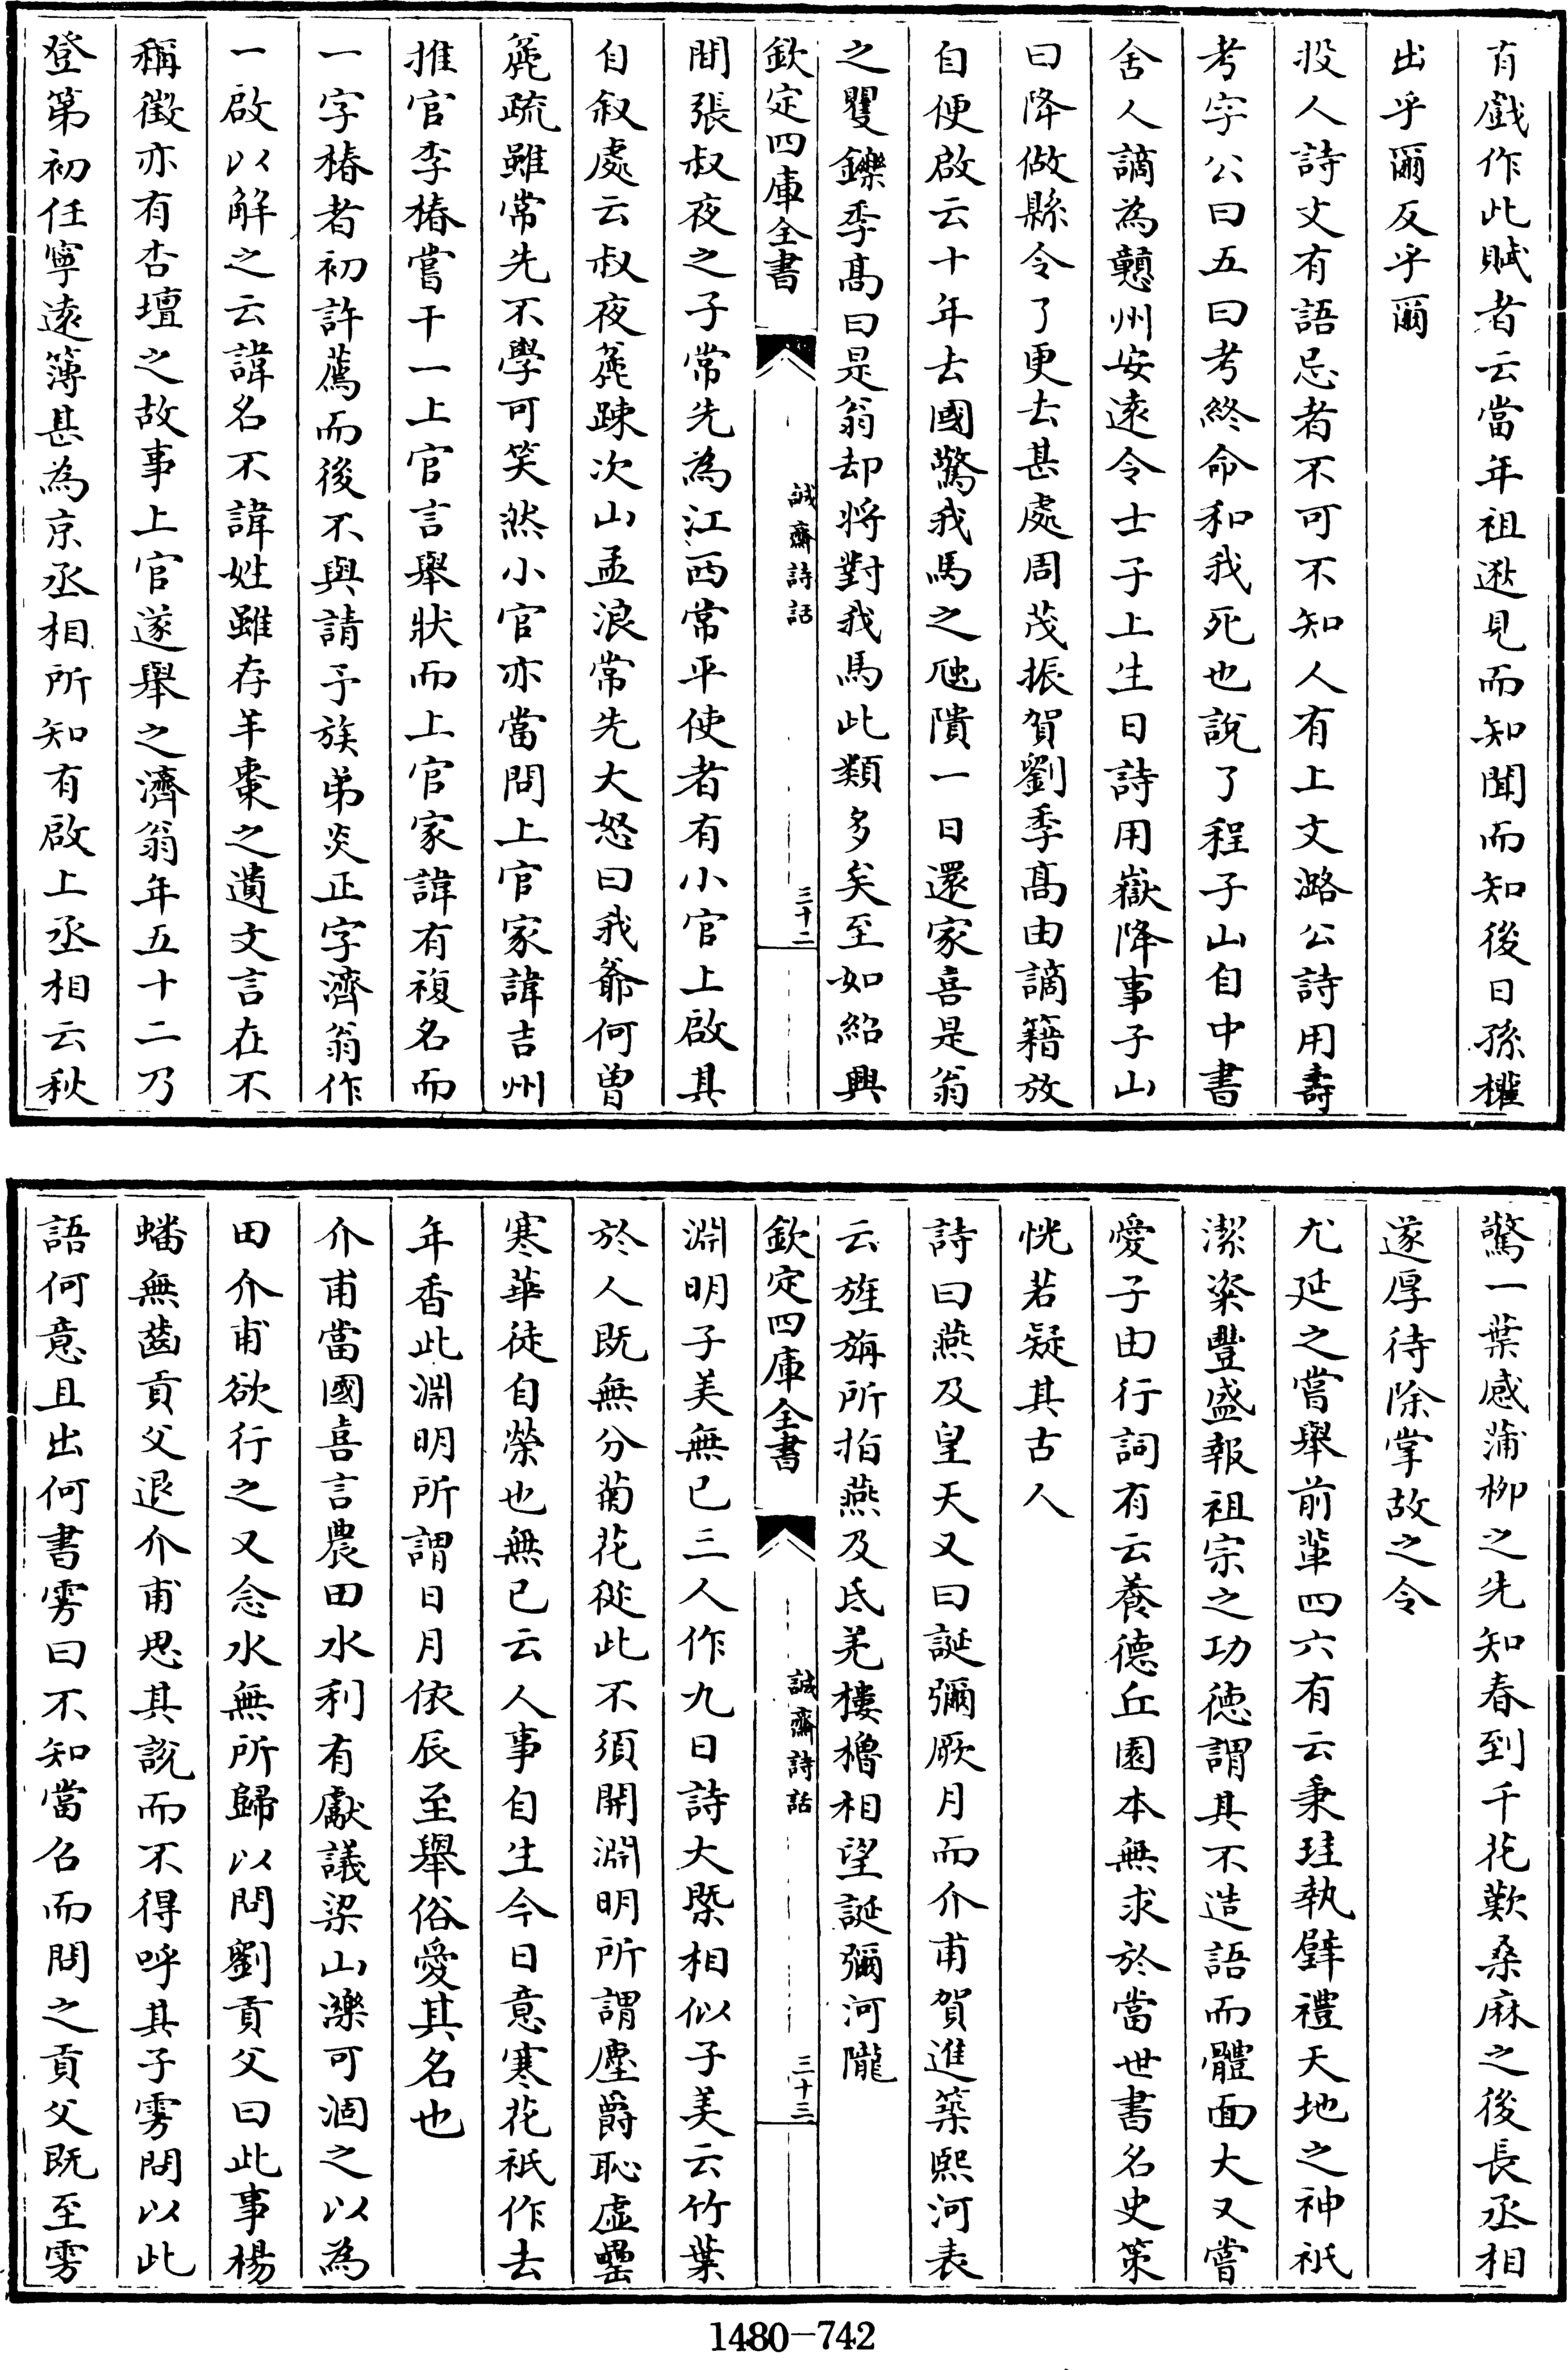 有戯作此賦者云當年祖逖見而知聞而知後日孫權
出乎爾反乎爾
投人詩文有語忌者不可不知人有上文潞公詩用壽
考字公曰五曰考終命和我死也說了程子山自中書
舍人謫為贛州安逺令士子上生日詩用嶽降事子山
曰降做縣令了更去甚處周茂振賀劉季髙由謫籍放
自便啟云十年去國驚我馬之虺隤一日還家喜是翁
之矍鑠季髙曰是翁却將對我馬此類多矣至如紹興
欽定四庫全書
誠齋詩話
三十二
間張叔夜之子常先為江西常平使者有小官上啟其
自叙處云叔夜麄踈次山孟浪常先大怒曰我爺何曽
麄疏雖常先不學可笑然小官亦當問上官家諱吉州
推官李椿嘗干一上官言舉狀而上官家諱有複名而
一字椿者初許薦而後不與請予族弟炎正字濟翁作
一啟以解之云諱名不諱姓雖存羊棗之遺文言在不
稱徵亦有杏壇之故事上官遂舉之濟翁年五十二乃
登第初任寧逺簿甚為京丞相所知有啟上丞相云秋
驚一葉感蒲柳之先知春到千花歎桑麻之後長丞相
遂厚待除掌故之令
尤延之嘗舉前輩四六有云秉珪執璧禮天地之神祇
潔粢豐盛報祖宗之功徳謂其不造語而體面大又嘗
愛子由行詞有云養德丘園本無求於當世書名史策
恍若疑其古人
詩曰燕及皇天又曰誕彌厥月而介甫賀進築熙河表
云旌旃所指燕及氐羌樓櫓相望誕彌河隴
欽定四庫全書
誠齋詩話
三十三
淵明子美無已三人作九日詩大槩相似子美云竹葉
於人既無分菊花從此不須開淵明所謂塵爵恥虛罍
寒華徒自榮也無已云人事自生今日意寒花祇作去
年香此淵明所謂日月依辰至舉俗愛其名也
介甫當國喜言農田水利有獻議梁山濼可涸之以為
田介甫欲行之又念水無所歸以問劉貢父曰此事楊
蟠無齒貢父退介甫思其說而不得呼其子雱問以此
語何意且出何書雱曰不知當召而問之貢父既至雱
1480—742